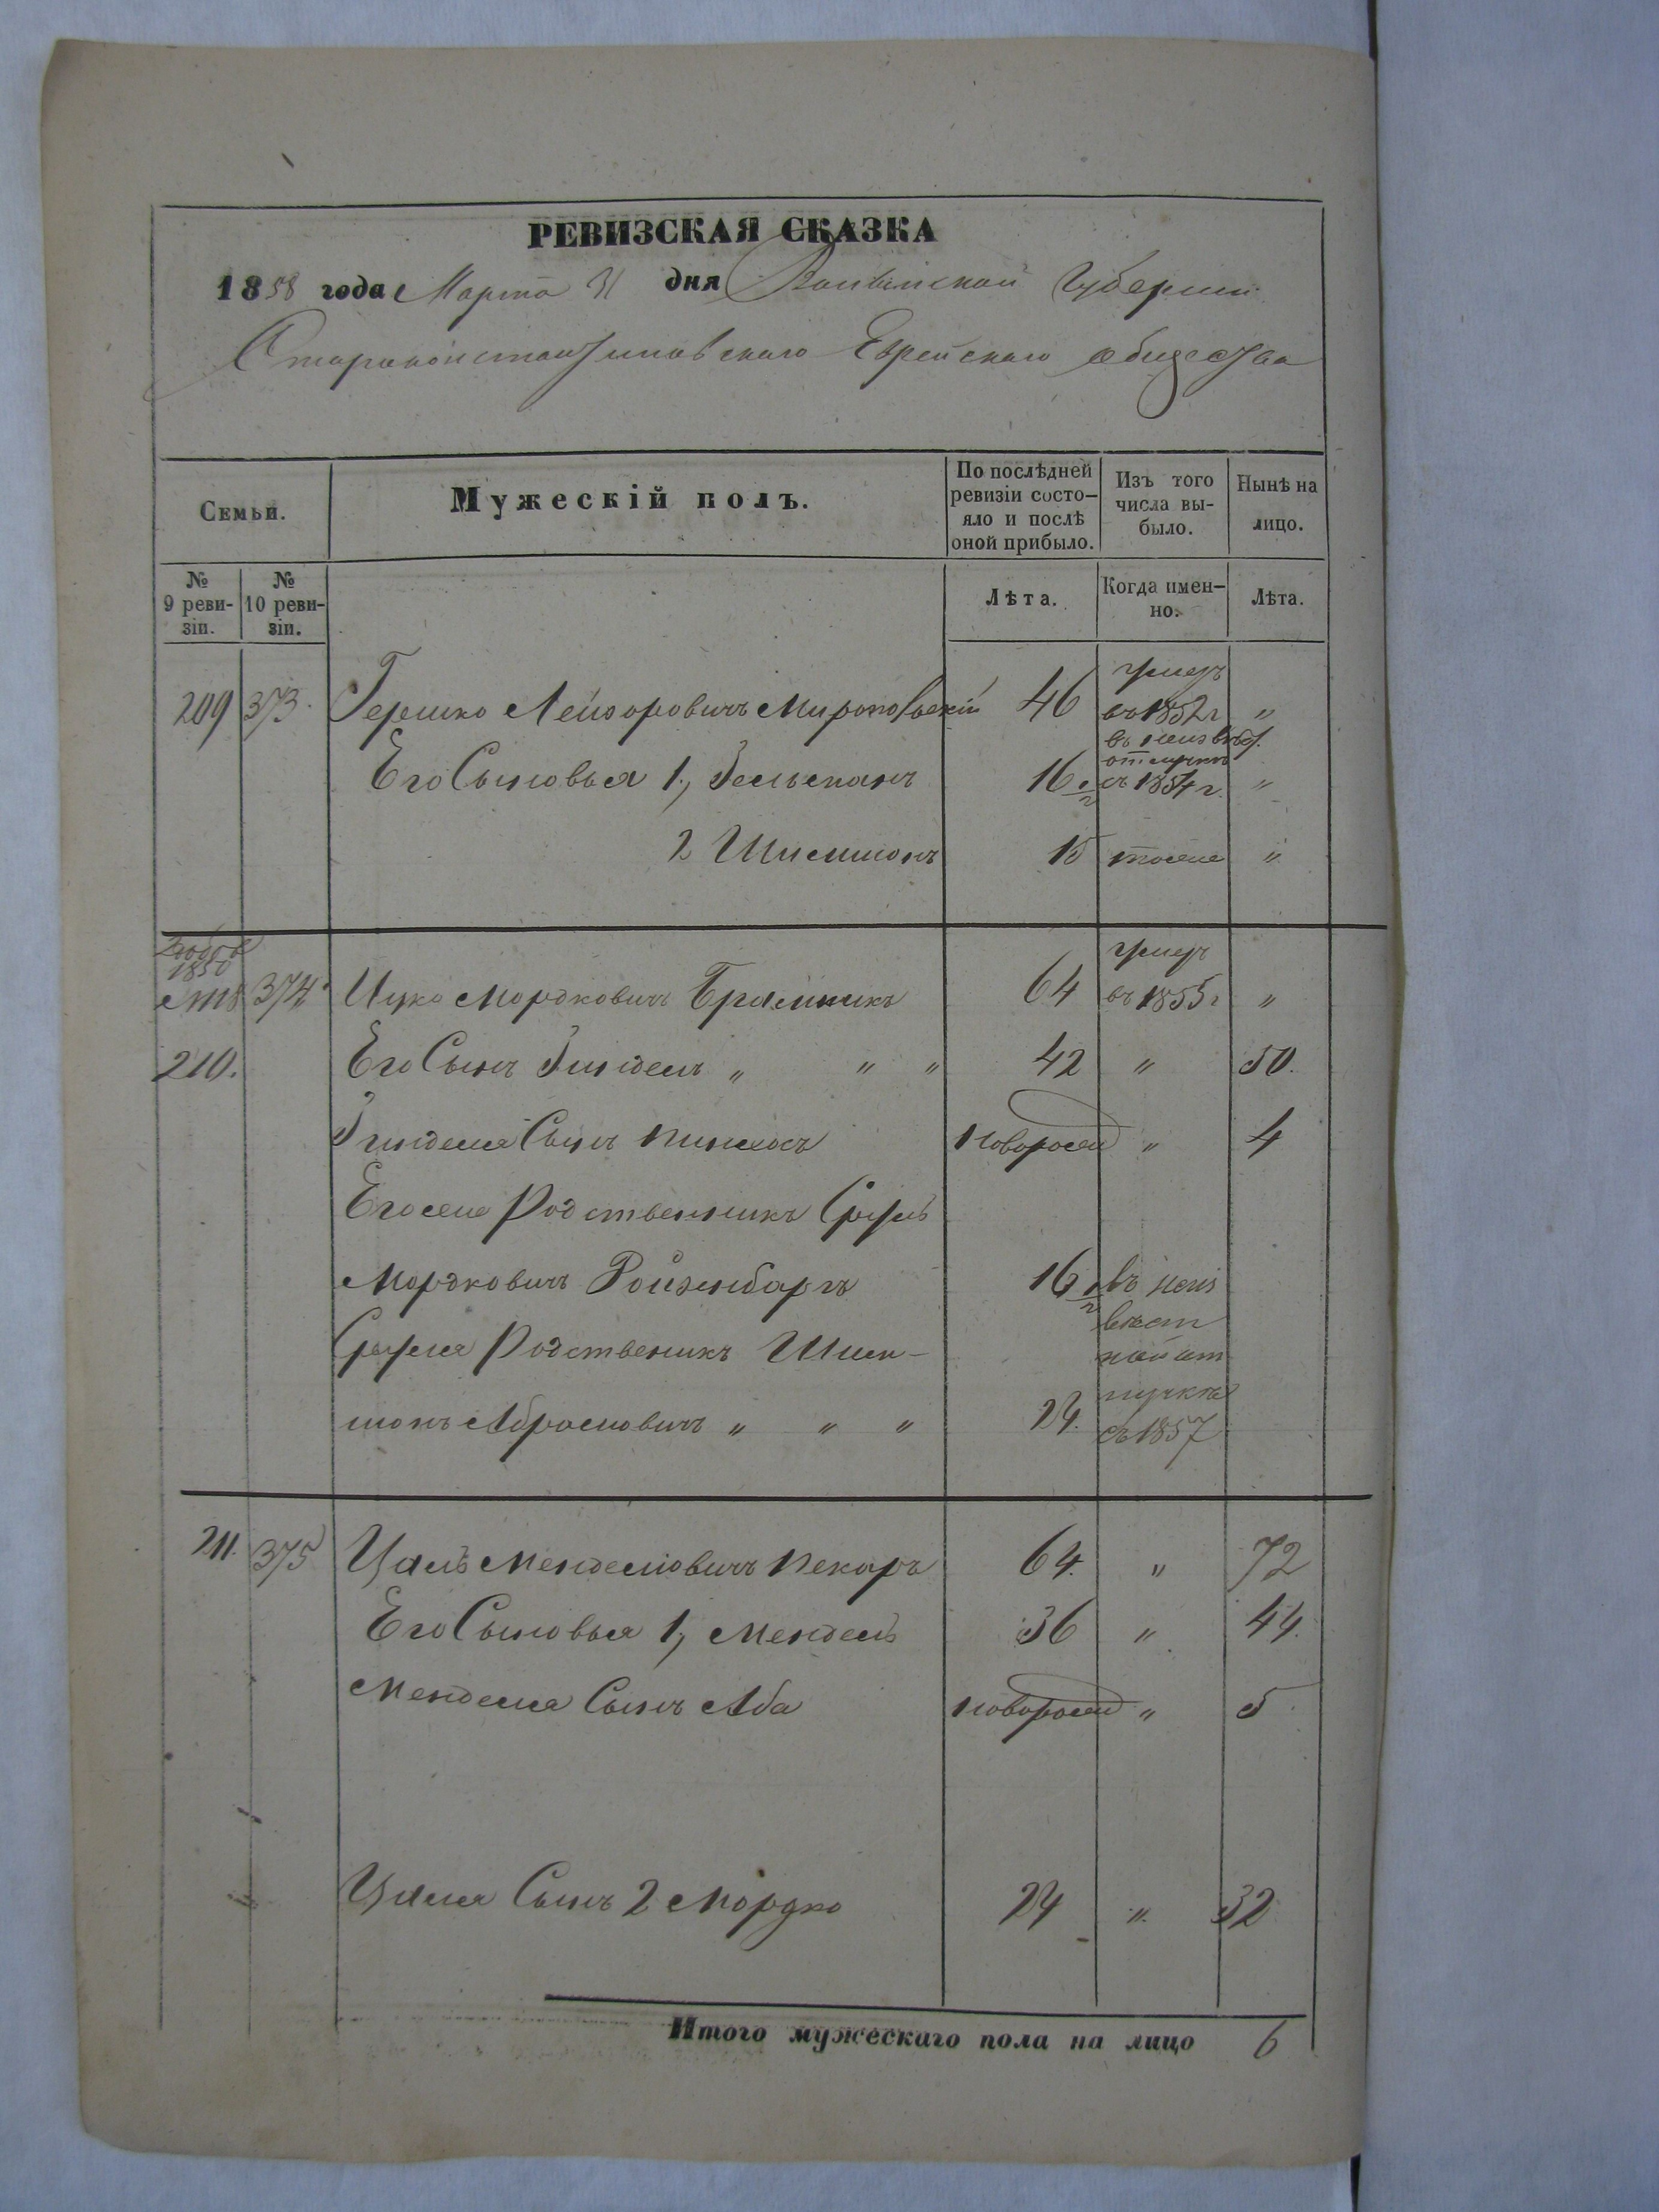 РЕВИЗСКАЯ СКАЗКА
1858 года Марта 31 дня Волынской Губернии
Староконстантиновскаго Еврейскаго общества
Семьи.
Мужескій полъ.
По послѣдней ревизіи состо-
яло и послѣ оной прибыло.
Изъ того числа вы-
было.
Нынѣ на лицо.
№ 9 реви-
зіи.
№ 10 реви-
зіи.
Лѣта.
Когда имен-
но.
Лѣта.
209 373. Гершко Лейзоровичъ 46 умеръ въ 1852 г "
Его Сыновья 1, 16 1/2 въ неизвѣст. отлучкѣ съ 1854 г. "
2 Шимшонъ 15 тоже "
1850
374 Ицко Мордковичъ 64 умеръ въ 1855 г "
210. Его Сынъ Зиндель " " " 42 " 50.
Зинделя Сынъ Пинхосъ новорожд " 4
Его же Родственникъ Сруль
Мордковичъ Ройзенбаргъ 16 1/2 въ неиз
Сруля Родственикъ Шим- вѣст
ной от
шонъ Абрамовичъ " " " 24. лучкѣ
съ 1857
211. 375 Цаль Менделіовичъ Пекаръ 64. " 72
Его Сыновья 1, Мендель 36 " 44.
Менделя Сынъ Аба новорожд " 5
Цаля Сынъ 2 Мордко 24 " 32
Итого мужескаго пола на лицо 6